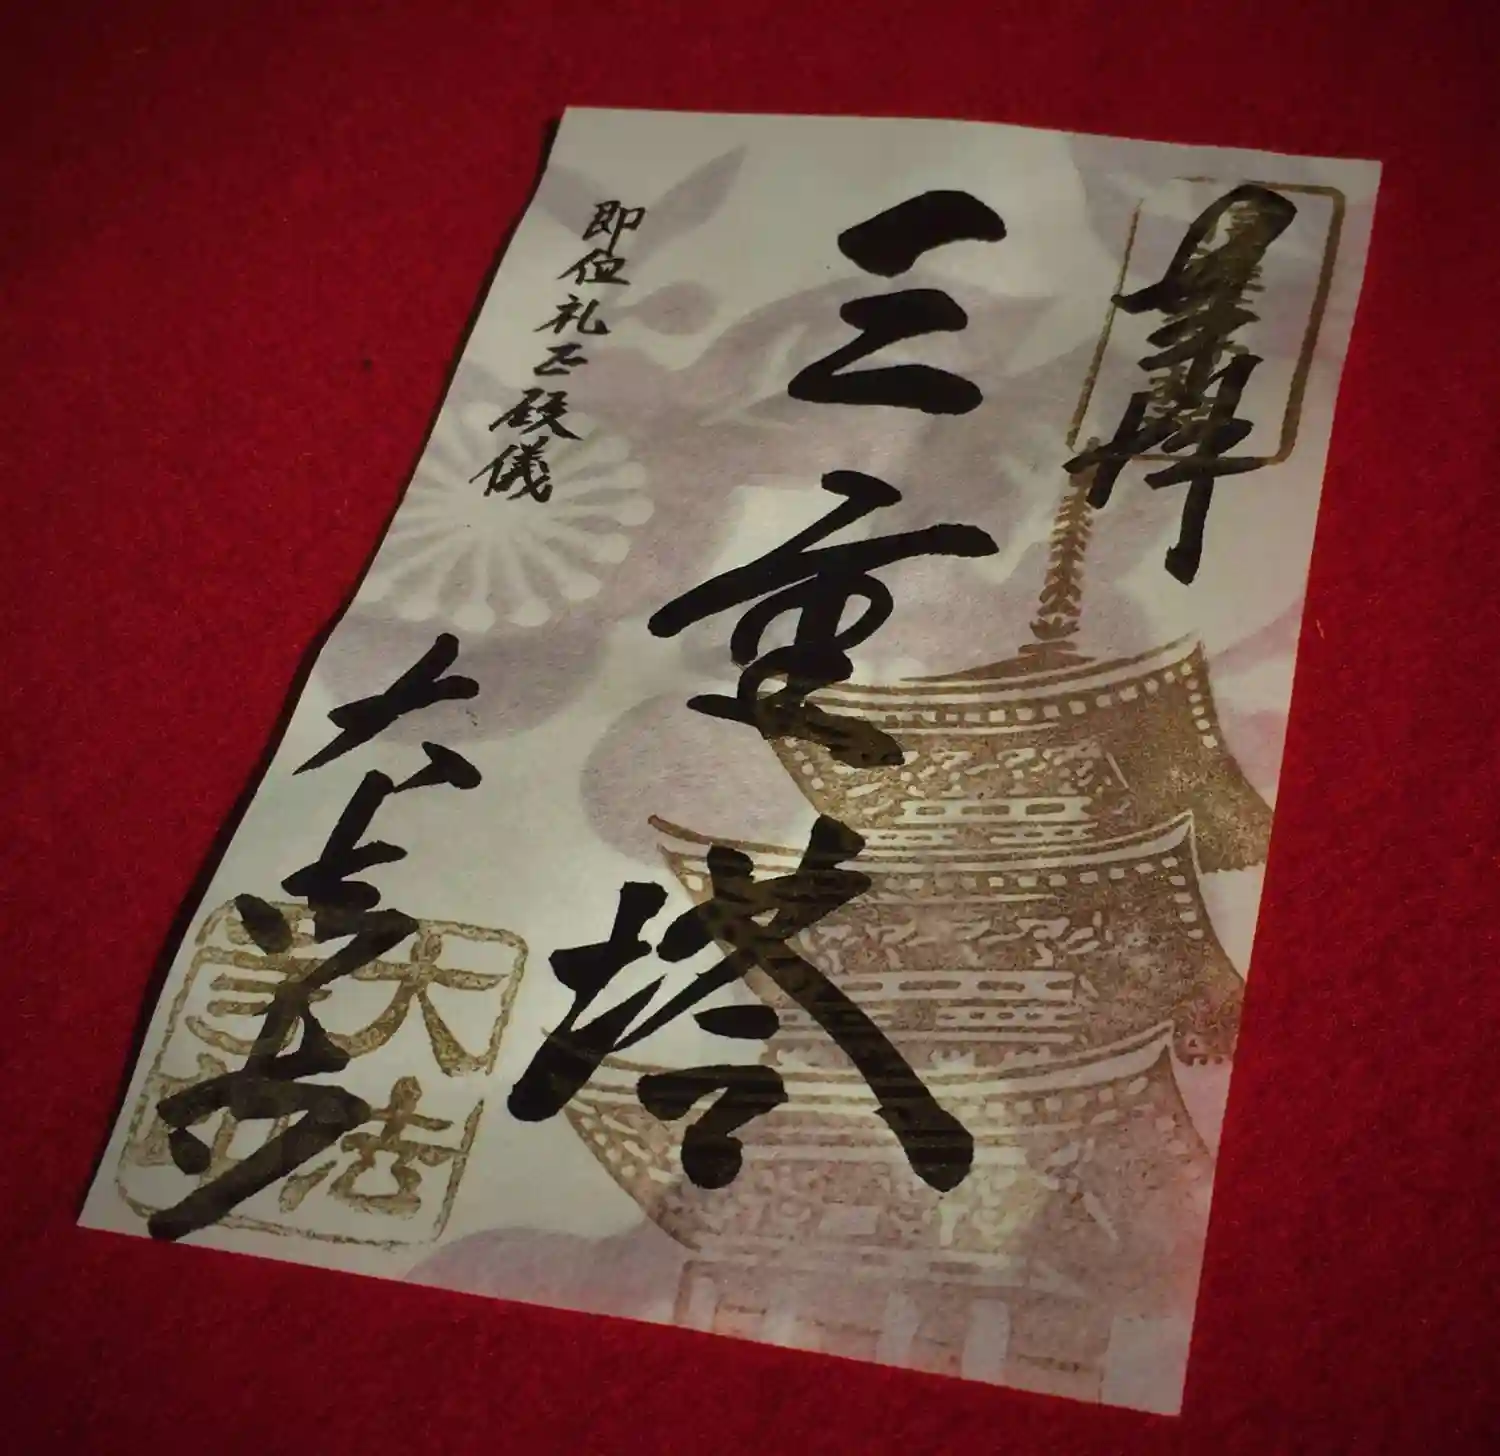 奉拝
三重塔
即位礼正殿儀
大法寺
大法